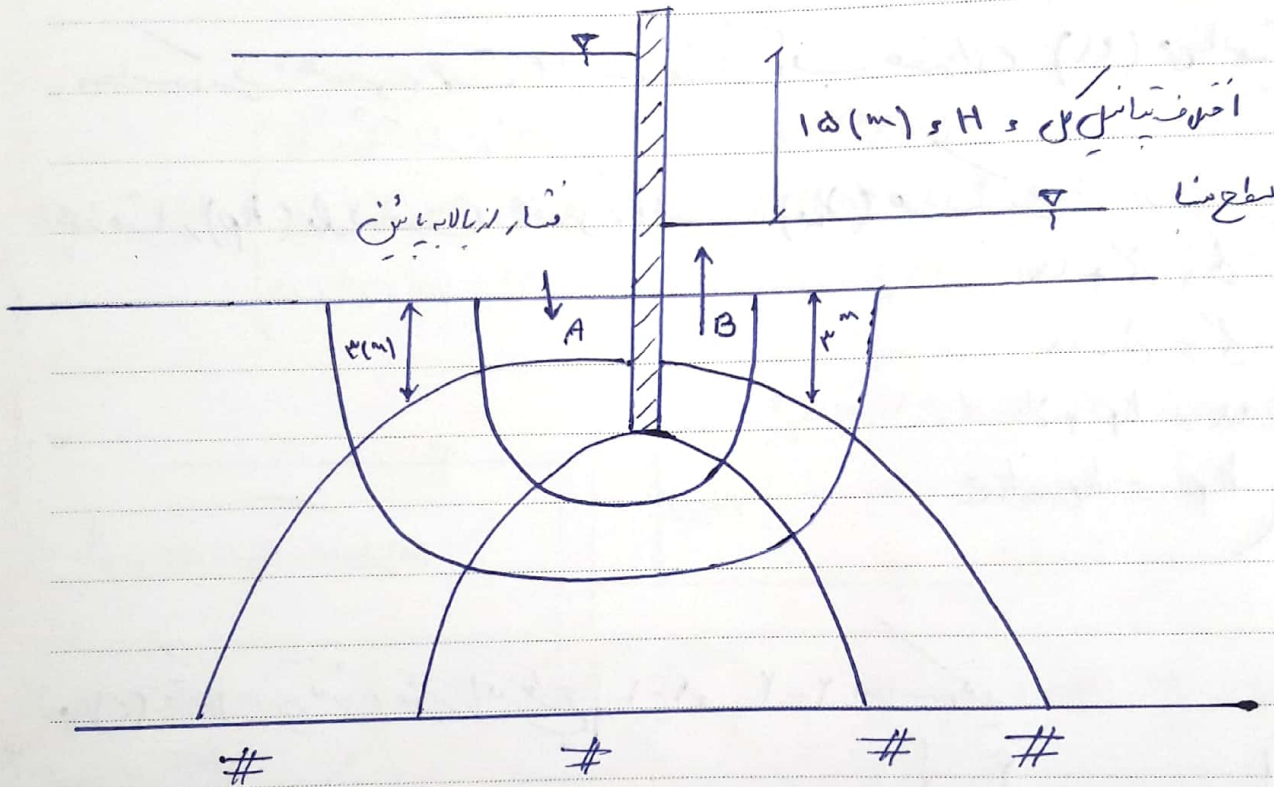 اختلاف پتانسیل کل = H = ۱۵(m)
سطح مبنا
فشار از بالا به پایین
۳(m)
A
B
۳m